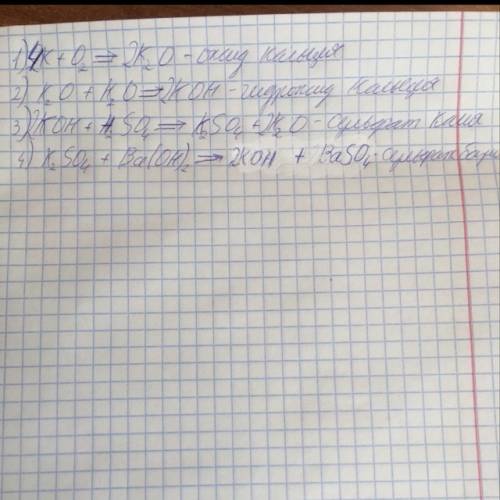 1) 4K + O₂ ⇒ 2K₂O - оксид кальция
2) K₂O + H₂O ⇒ 2KOH - гидроксид кальция
3) 2KOH + H₂SO₄ ⇒ K₂SO₄ + 2H₂O - сульфат калия
4) K₂SO₄ + Ba(OH)₂ ⇒ 2KOH + BaSO₄ - сульфат бари